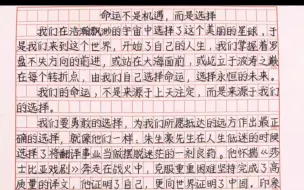 命运不是机遇，而是选择
我们在浩瀚飘渺的宇宙中选择了这个美丽的星球，于
是我们来到这个世界，开始了自己的人生，我们掌握着罗
盘不失方向的前进，或站在大海面前，或站立于波涛之巅
在每个转折点，由我们自己选择命运，选择永恒的未来。
我们的命运，不是来源于上天注定，而是来源于我们
的选择。
我们要勇敢的选择，为我们所愿抵达的远方作出最正
确的选择，就像他们一样。朱生豪先生在人生低迷的时候
选择了将翻译事业当做摆脱迷茫的一剂良药。他怀揣《莎士
比亚戏剧》奔走在战火中，克服重重困难坚持完成了高
质量的译文，他证明了自己，更向世界证明了中国，印象